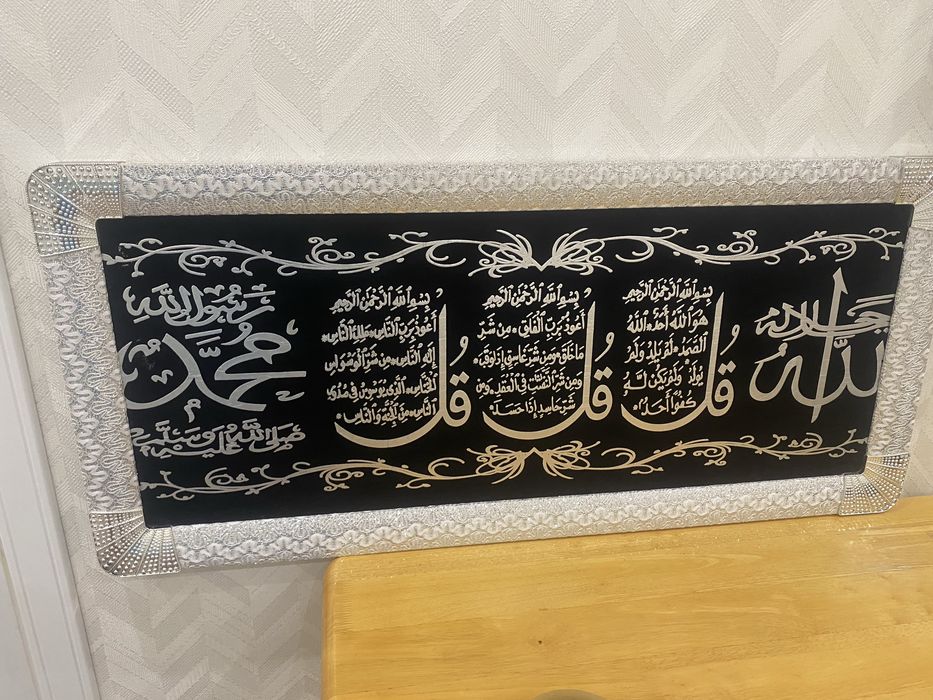 الله
جل جلاله
بِسْمِ ٱللَّهِ ٱلرَّحْمَٰنِ ٱلرَّحِيمِ
قُلْ
هُوَ ٱللَّهُ أَحَدٌ ٱللَّهُ
ٱلصَّمَدُ لَمْ يَلِدْ وَلَمْ
يُولَدْ وَلَمْ يَكُن لَّهُ
كُفُوًا أَحَدٌ
بِسْمِ ٱللَّهِ ٱلرَّحْمَٰنِ ٱلرَّحِيمِ
قُلْ
أَعُوذُ بِرَبِّ ٱلْفَلَقِ مِن شَرِّ
مَا خَلَقَ وَمِن شَرِّ غَاسِقٍ إِذَا وَقَبَ
وَمِن شَرِّ ٱلنَّفَّٰثَٰتِ فِي ٱلْعُقَدِ وَمِن
شَرِّ حَاسِدٍ إِذَا حَسَدَ
بِسْمِ ٱللَّهِ ٱلرَّحْمَٰنِ ٱلرَّحِيمِ
قُلْ
أَعُوذُ بِرَبِّ ٱلنَّاسِ مَلِكِ ٱلنَّاسِ
إِلَٰهِ ٱلنَّاسِ مِن شَرِّ ٱلْوَسْوَاسِ
ٱلْخَنَّاسِ ٱلَّذِي يُوَسْوِسُ فِي صُدُورِ
ٱلنَّاسِ مِنَ ٱلْجِنَّةِ وَٱلنَّاسِ
رَسُولُ اللَّهِ
مُحَمَّد
صَلَّى اللَّهُ عَلَيْهِ وَسَلَّمَ